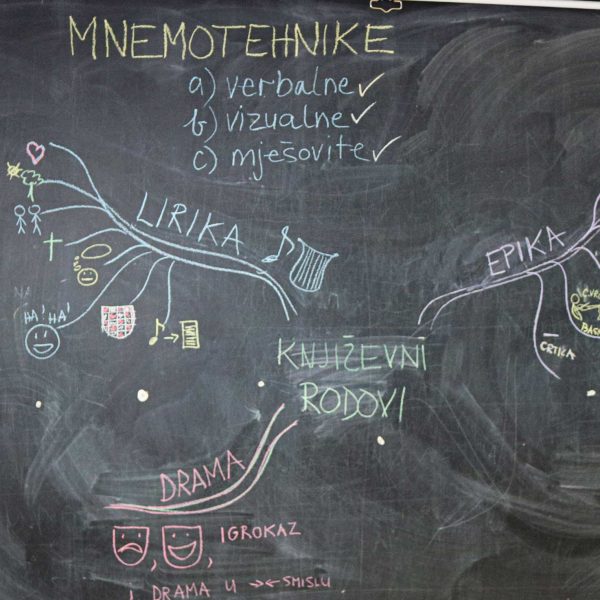 MNEMOTEHNIKE
a) verbalne
b) vizualne
c) mješovite
LIRIKA
HA! HA!
EPIKA
CRTICA
KNJIŽEVNI
RODOVI
DRAMA
IGROKAZ
DRAMA U →← SMISLU